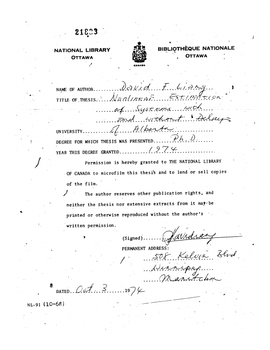 21883
NATIONAL LIBRARY
OTTAWA
BIBLIOTHÈQUE NATIONALE
OTTAWA
NAME OF AUTHOR David F. Liang
TITLE OF THESIS Nonlinear Estimation
of Systems with
and without Delays
UNIVERSITY of Alberta
DEGREE FOR WHICH THESIS WAS PRESENTED Ph.D
YEAR THIS DEGREE GRANTED 1974
Permission is hereby granted to THE NATIONAL LIBRARY
OF CANADA to microfilm this thesis and to lend or sell copies
of the film.
The author reserves other publication rights, and
neither the thesis nor extensive extracts from it may be
printed or otherwise reproduced without the author's
written permission.
(Signed)
PERMANENT ADDRESS:
508 Kelvin Blvd
Winnipeg
Manitoba
DATED Oct 3 1974
NL-91 (10-68)